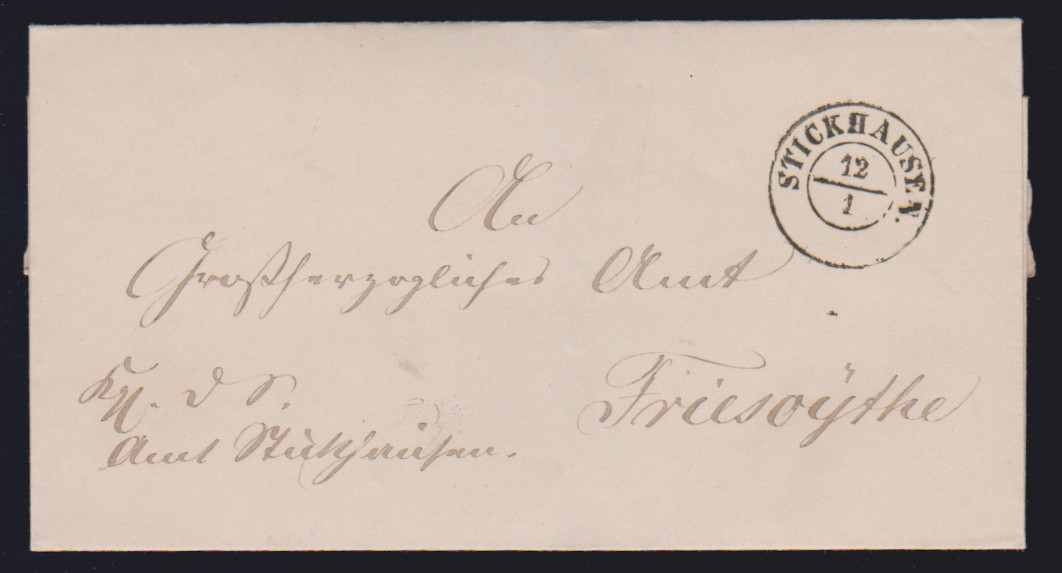 STICKHAUSEN.
12
1
An
Großherzogliches Amt
Friesoÿthe
d. S.
Amt Stickhausen.